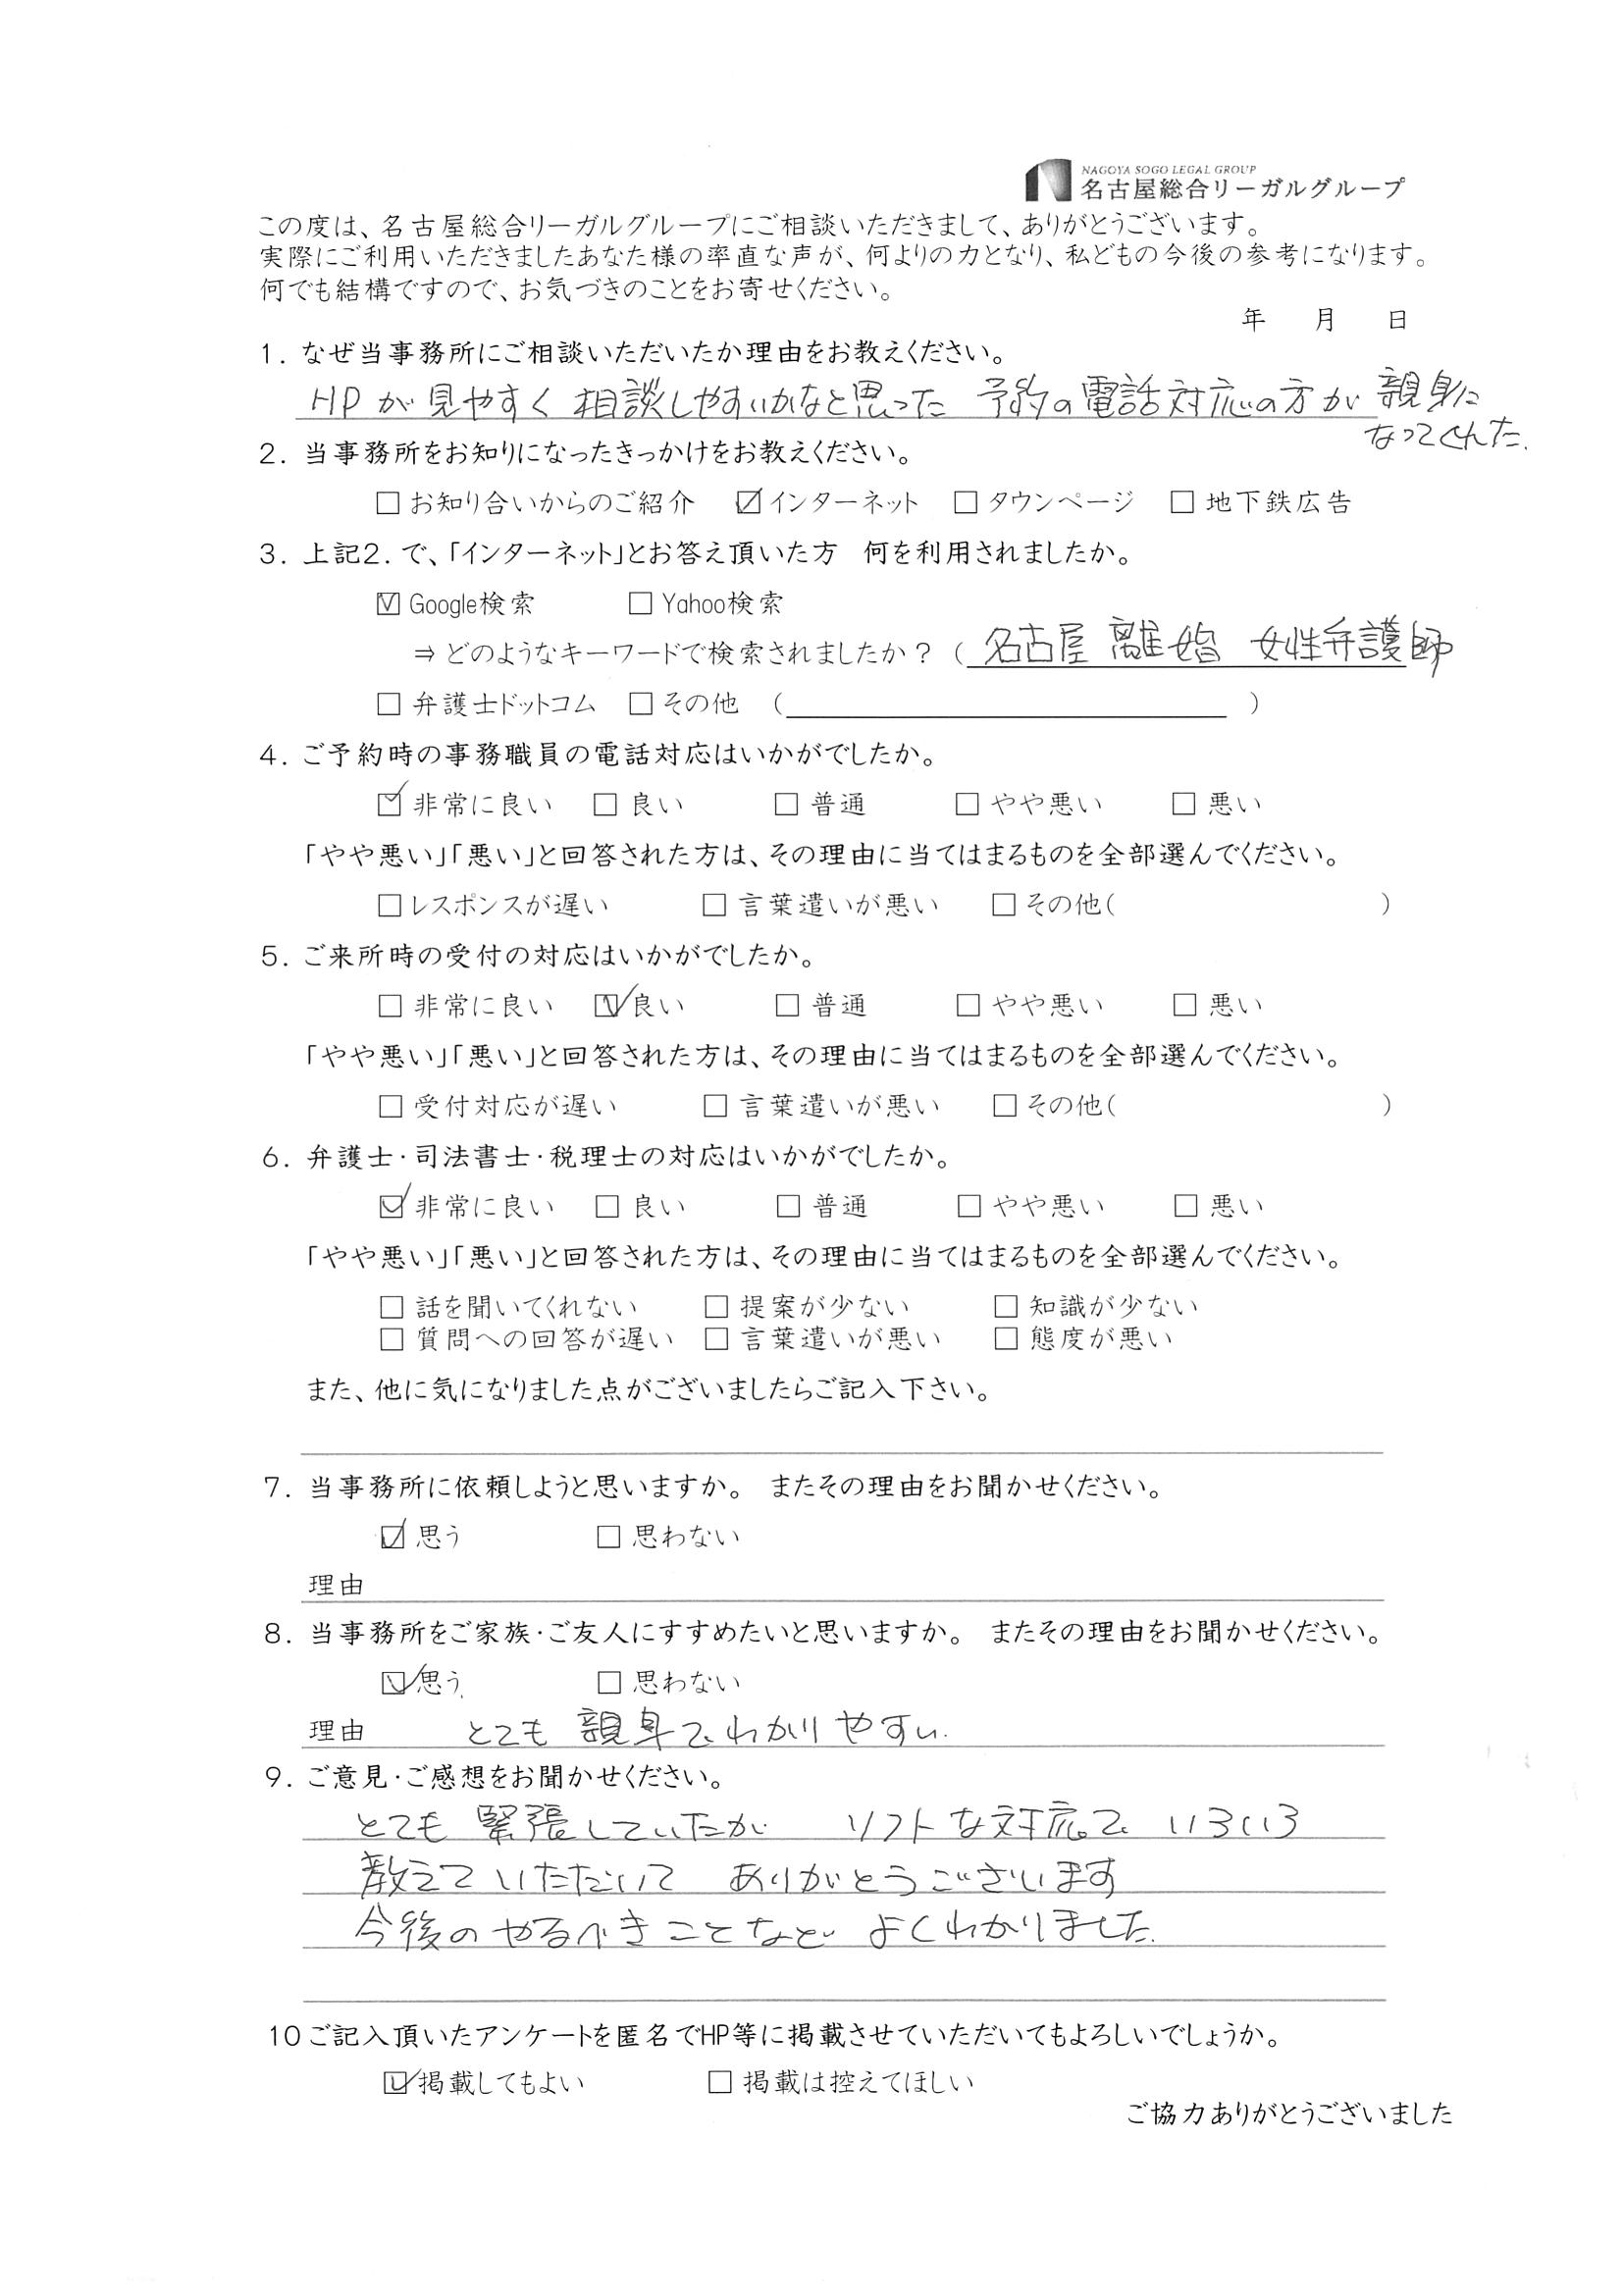 NAGOYA SOGO LEGAL GROUP
名古屋総合リーガルグループ
この度は、名古屋総合リーガルグループにご相談いただきまして、ありがとうございます。
実際にご利用いただきましたあなた様の率直な声が、何よりの力となり、私どもの今後の参考になります。
何でも結構ですので、お気づきのことをお寄せください。
年 月 日
1. なぜ当事務所にご相談いただいたか理由をお教えください。
HPが見やすく 相談しやすいかなと思った 予約の電話対応の方が 親身に
なってくれた.
2. 当事務所をお知りになったきっかけをお教えください。
□ お知り合いからのご紹介 ☑ インターネット □ タウンページ □ 地下鉄広告
3. 上記2. で、「インターネット」とお答え頂いた方 何を利用されましたか。
☑ Google検索 □ Yahoo検索
⇒ どのようなキーワードで検索されましたか？ ( 名古屋 離婚 女性弁護師
□ 弁護士ドットコム □ その他 ( )
4. ご予約時の事務職員の電話対応はいかがでしたか。
☑ 非常に良い □ 良い □ 普通 □ やや悪い □ 悪い
「やや悪い」「悪い」と回答された方は、その理由に当てはまるものを全部選んでください。
□ レスポンスが遅い □ 言葉遣いが悪い □ その他( )
5. ご来所時の受付の対応はいかがでしたか。
□ 非常に良い ☑ 良い □ 普通 □ やや悪い □ 悪い
「やや悪い」「悪い」と回答された方は、その理由に当てはまるものを全部選んでください。
□ 受付対応が遅い □ 言葉遣いが悪い □ その他( )
6. 弁護士・司法書士・税理士の対応はいかがでしたか。
☑ 非常に良い □ 良い □ 普通 □ やや悪い □ 悪い
「やや悪い」「悪い」と回答された方は、その理由に当てはまるものを全部選んでください。
□ 話を聞いてくれない □ 提案が少ない □ 知識が少ない
□ 質問への回答が遅い □ 言葉遣いが悪い □ 態度が悪い
また、他に気になりました点がございましたらご記入下さい。
7. 当事務所に依頼しようと思いますか。 またその理由をお聞かせください。
☑ 思う □ 思わない
理由
8. 当事務所をご家族・ご友人にすすめたいと思いますか。 またその理由をお聞かせください。
☑ 思う □ 思わない
理由 とても 親身で わかりやすい.
9. ご意見・ご感想をお聞かせください。
とても 緊張していたが ソフトな対応で いろいろ
教えて いただいて ありがとうございます
今後の やるべきことなど よくわかりました.
10 ご記入頂いたアンケートを匿名でHP等に掲載させていただいてもよろしいでしょうか。
☑ 掲載してもよい □ 掲載は控えてほしい
ご協力ありがとうございました